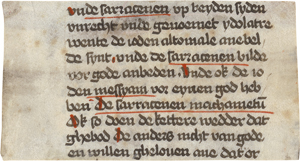 vnde sarracenen vp beyden syden
vnrecht vnde genoemet ydolatre
wente de ioden altomale ane bel
de synt. vnde de sarracenen bilde
vor gode anbeden. Vnde ok de io
den messyam vor eynen god heb
ben De sarracenen machametū
Ok so doen de kettere wedder dat
ghebod De anders nicht van gode
en willen ghelouen ane dat or